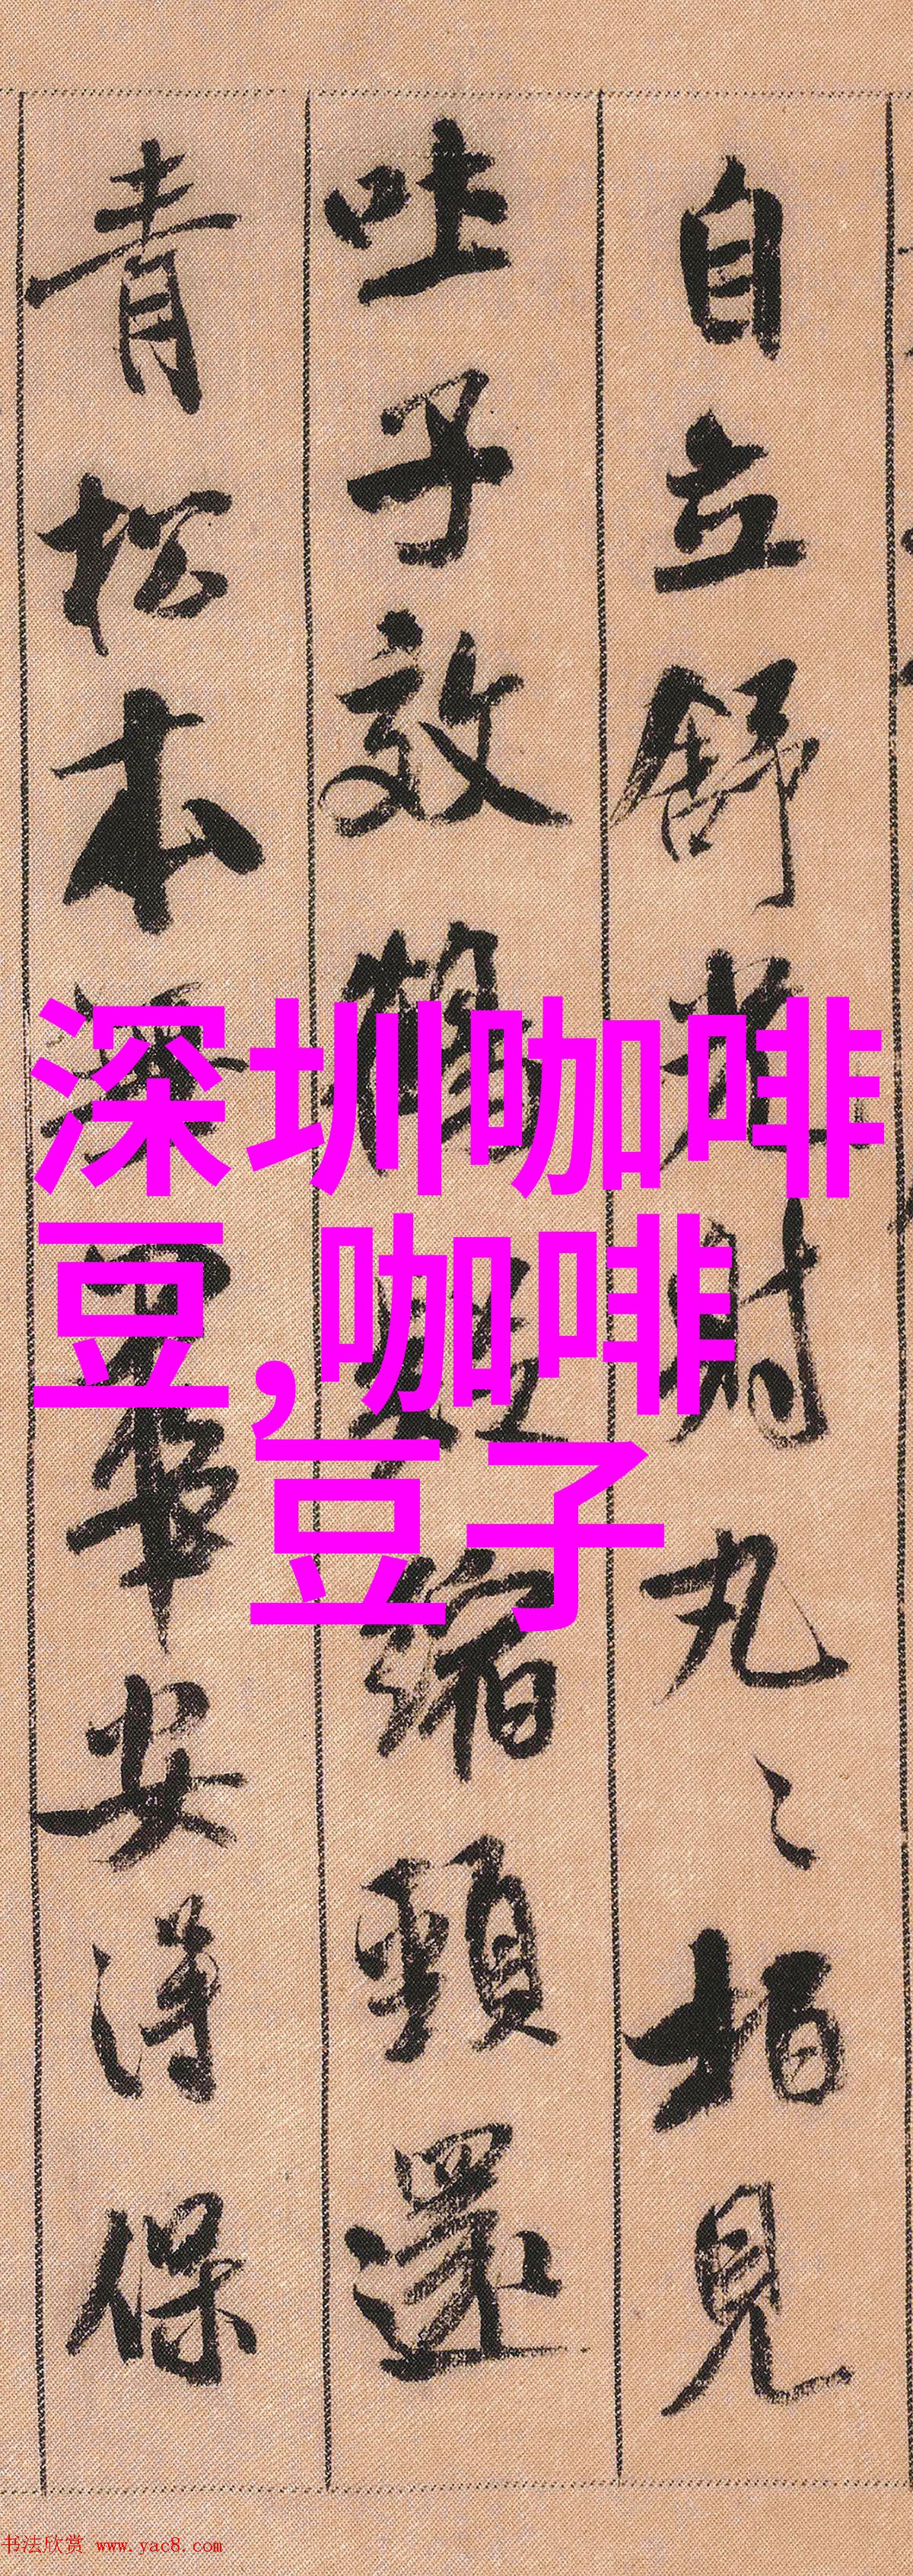 自立舒光射丸〻柏見
吐子效鶴疑縮頸還
青松本無華安得保
深圳咖啡
豆,咖啡
豆子
书法欣赏 www.yac8.com